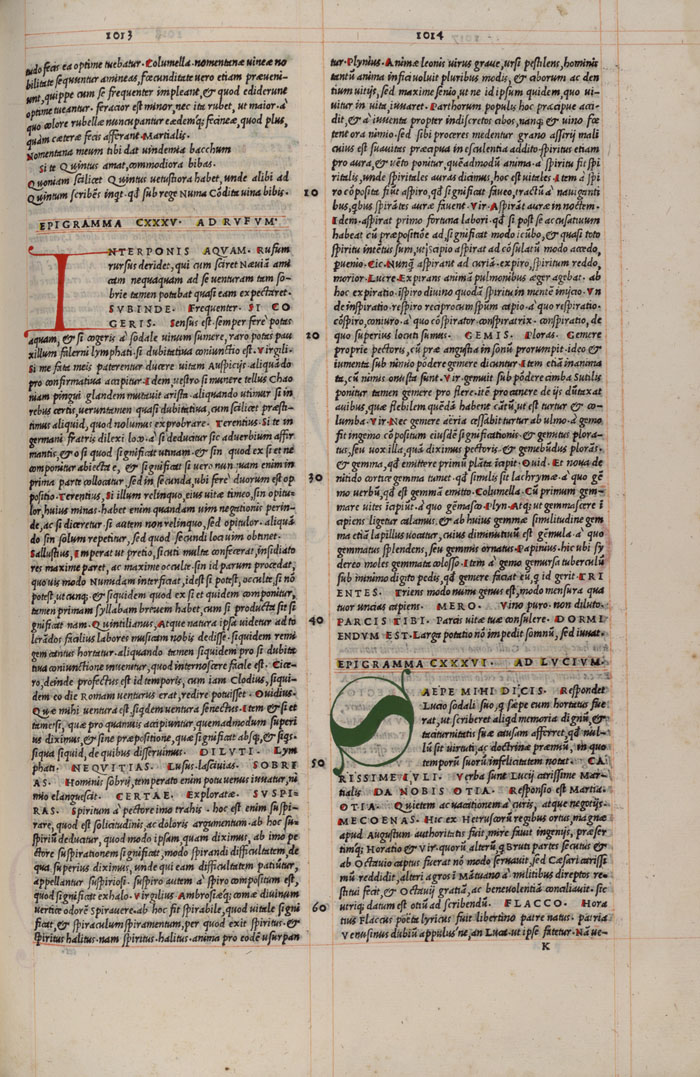 1013
tudo fecit ea optime tuebatur. Columella. nomentanæ uineæ no
bilitate sequuntur amineas, fœcunditate uero etiam præueni-
unt, quippe cum se frequenter impleant, & quod ediderunt
optime tueantur. feracior est minor, nec ita rubet, ut maior. a
quo colore rubellæ nuncupantur eædemq; fecineæ, quod plus,
quàm cæteræ fecis afferant. Martialis.
Nomentana meum tibi dat uindemia bacchum
Si te Quintus amat, commodiora bibas.
Quoniam scilicet Quintus uetustiora habet, unde alibi ad
Quintum scribēs inqt. qđ sub rege Numa Cōdita uina bibis.
EPIGRAMMA CXXXV. AD RVFVM.
INTERPONIS AQVAM. Rufum
rursus deridet, qui cum sciret Næuiā ami
cam nequaquam ad se uenturam tam so-
brie tamen potabat quasi eam expectaret.
SVBINDE. Frequenter. SI CO
GERIS. Sensus est. semper ferè potas
aquam, & si cogeris à sodale uinum sumere, raro potes pau
xillum falerni lymphati. si dubitatiua coniunctio est. Virgili.
Si me fata meis paterentur ducere uitam Auspicijs. aliquādo
pro confirmatiua accipitur. Idem, uestro si munere tellus Chao
niam pingui glandem mutauit arista. aliquando utimur si in
rebus certis, ueruntamen quasi dubitatiua, cum scilicet præsti-
timus aliquid, quod nolumus exprobrare. Terentius. Si te in
germani fratris dilexi loco. à si deducitur sic aduerbium affir
mantis, & o si quod significat utinam. & sin quod ex si et ne
componitur abiecta e, & significat si uero nun quam enim in
prima parte collocatur, sed in secunda, ubi ferè duorum est op
positio. Terentius, Si illum relinquo, eius uitæ timeo, sin opitu-
lor, huius minas. habet enim quandam uim negationis perin-
de, ac si diceretur si autem non uelinquo, sed opitulor. aliquā
do sin solum repetitur, sed quod secundi loci uim obtinet.
Sallustius, Imperat ut pretio, sicuti multa confecerat, insidiato
res maxime paret, ac maxime occulte. sin id parum procedat,
quouis modo Numidam interficiat, idest si potest, occulte, si nō
potest, utcunq;. & siquidem quod ex si et quidem componitur,
tamen primam syllabam breuem habet, cum si producta sit si
gnificat nam. Quintilianus, Atque natura ipsa uidetur ad to
lerādos facilius labores musicam nobis dedisse. siquidem remi
gem cantus hortatur. aliquando tamen siquidem pro si dubita
tiua coniunctione inuenitur, quod internoscere facile est. Cice-
ro, deinde profectus est id temporis, cum iam Clodius, siqui-
dem eo die Romam uenturus erat, redire potuisset. Ouidius.
Quæ mihi uentura est, siqđem uentura senectus. Item & si et
tametsi, quæ pro quanuis accipiuntur, quemadmodum superi
us diximus, & sine præpositione, quæ significat absq;, & siqs.
siqua siquid, de quibus disseruimus. DILVTI. Lym
phati. NEQVITIAS. Lusus. lasciuias. SOBRI
AS. Hominis sobrij, temperato enim potu uenus inuatur, ni
mio elanguescit. CERTAE. Exploratæ. SVSPI-
RAS. Spiritum à pectore imo trahis. hoc est enim suspi-
rare, quod est solicitudinis, ac doloris argumentum. ab hoc su-
spiriū deducitur, quod modo ipsam, quam diximus, ab imo pe
ctore suspirationem significat, modo spirandi difficultatem, de
qua superius diximus, unde qui eam difficultatem patiuntur,
appellantur suspiriosi. suspiro autem à spiro compositum est,
quod significat exhalo. Virgilius Ambrosiæq; comæ diuinum
uertice odorē Spirauere. ab hoc fit spirabile, quod uitale signi
ficat, & spiraculum spiramentum, per quod exit spiritus. &
spiritus halitus. nam spiritus. halitus. anima pro eodē usurpan
10
20
30
40
50
60
1014
tur. Plynius. Animæ leonis uirus graue, ursi pestilens, hominis
tantū anima infici uoluit pluribus modis, & ciborum ac den
tium uitijs, sed maxime senio, ut ne id ipsum quidem, quo ui-
uitur in uita, iuuaret. Parthorum populis hoc præcipue acci-
dit, & à iuuenta propter indiscretos cibos, nanq; & uino fœ
tent ora nimio. sed sibi proceres medentur grano assirij mali
cuius est suauitas præcipua in esculenta addito. spiritus etiam
pro aura, & uēto ponitur, quēadmodū anima. à spiritu fit spi
ritalis, unde spiritales auras dicimus, hoc est uitales. Item à spi
ro cōposita fiūt aspiro, qđ significat faueo, tractū à nauiganti
bus, qbus spirātes auræ fauent. Vir. Aspirāt auræ in noctem.
Idem. aspirat primo fortuna labori. qđ si post se accusatiuum
habeat cū præpositiōe ad significat modo icūbo, & quasi toto
spiritu inuectus sum, ut scipio aspirat ad cōsulatū modo accedo,
puenio. Cic. Nunq̄ aspirant ad curiā. expiro, spiritum reddo,
morior. Lucre. Expirans animā pulmonibus æger agebat. ab
hoc expiratio. ispiro diuino quodā spiritu in mentē inijcio. Vn
de inspiratio. respiro reciprocum spūm capio. à quo respiratio.
cōspiro, coniuro. à quo cōspirator. conspiratrix. conspiratio, de
quo superius locuti sumus. GEMIS. Ploras. Gemere
proprie pectoris, cū præ angustia in sonū prorumpit. ideo &
iumenta sub nimio pōdere gemere dicuntur. Item etiā inanima
ta, cū nimis onusta sunt. Vir. gemuit sub pōdere cimba Sutilis
ponitur tamen gemere pro flere. itē procanere de ijs dūtaxat
auibus, quæ flebilem quēdā habent cātū, ut est turtur & co-
lumba. Vir. Nec gemere aēria cessabit turtur ab ulmo. à gemo
fit ingemo cōpositum eiusdē significationis. & gemitus plora-
tus, seu uox illa, quā diximus pectoris. & gemebūdus plorās.
& gemma, qđ emittere primū plāta icapit. Ouid. Et noua de
nitido cortice gemma tumet. qđ similis sit lachrymæ. à quo gē
mo uerbū, qđ est gemmā emitto. Columella. Cū primum gem-
mare uites icapiūt. à quo gēmasco. Plyn. Atq; ut gemmascere i
capiens ligetur calamus. & ab huius gemmæ similitudine gem
ma etiā lapillus uocatur, cuius diminutiuū est gēmula. à quo
gemmatus splendens, seu gemmis ornatus. Papinius. hic ubi sy
dereo moles gemmata colosso. Item à gemo gemursa tuberculū
sub minimo digito pedis, qđ gemere faciat eū, q id gerit. TRI
ENTES. Triens modo nume genus est, modo mensura quæ
tuor uncias capiens. MERO. Vino puro. non diluto.
PARCIS TIBI. Parcis uitæ tuæ consulere. DORMI
ENDVM EST. Larga potatio nō impedit somnū, sed iuuat.
EPIGRAMMA CXXXVI. AD LVCIVM.
SAEPE MIHI DICIS. Respondet
Lucio sodali suo, q sæpe eum hortatus fue
rat, ut scriberet aliqd memoria dignū, &
taciturnitatis suæ causam affereret, qđ nul-
lū sit uirtuti, ac doctrinæ præmiū, in quo
temporū suorū infelicitatem notat. CA
RISSIME IVLI. Verba sunt Lucij carissime Mar-
tialis DA NOBIS OTIA. Responsio est Martia.
OTIA. Quietem ac uacationem à curis, atque negocijs.
MECOENAS. Hic ex Hetruscorū regibus ortus, magnæ
apud Augustum authoritatis fuit, mire fauit ingenijs, præser
timq; Horatio & Vir. quorū alterū, q Bruti partes secutus &
ab Octauio captus fuerat nō modo seruauit, sed Cæsari carissi
mū reddidit, alteri agros i Mātuano à militibus direptos re-
stitui fecit, & Octauij gratiā, ac beneuolentiā conciliauit. sic
utriq; datum est otiū ad scribendū. FLACCO. Hora
tius Flaccus poëta lyricus fuit libertino patre natus. patria
Venusinus dubiū appulus ne, an Lucæ. ut ipse fatetur. Nā ue-
K